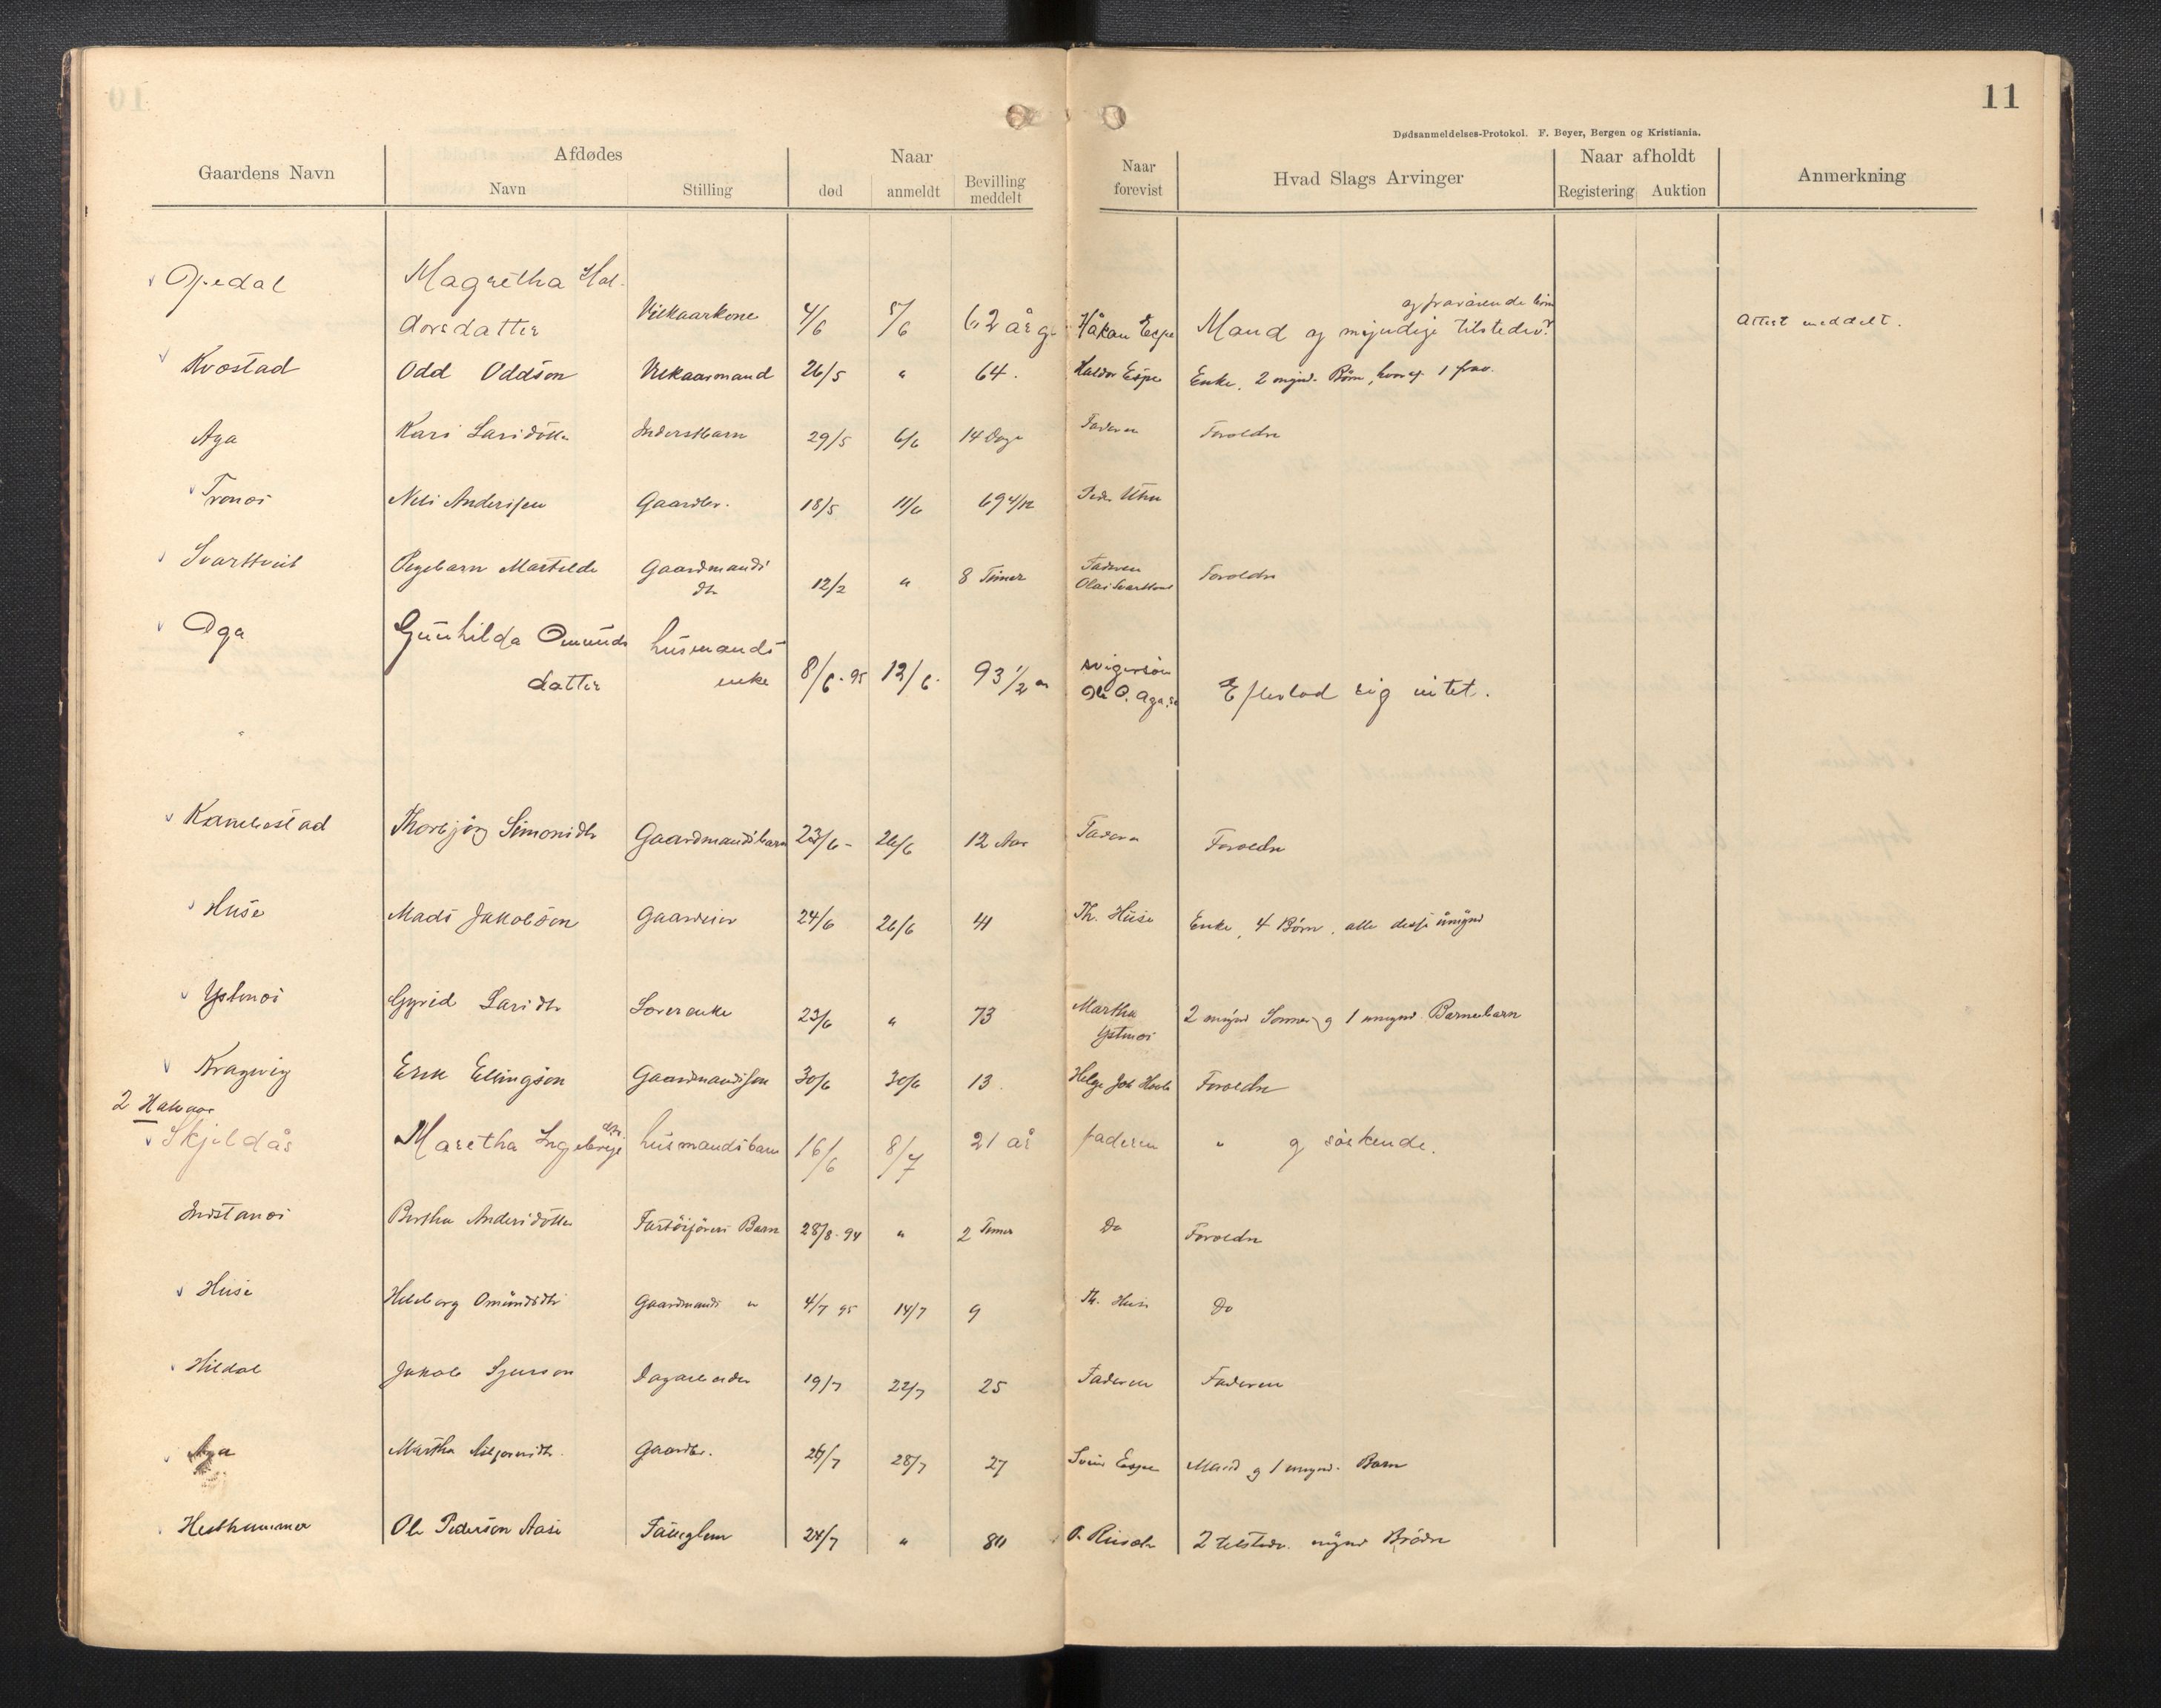 11
Dødsanmeldelses-Protokol. F. Beyer, Bergen og Kristiania.
Gaardens Navn | Afdødes Navn | Stilling | Naar død | anmeldt | Bevilling meddelt | Naar forevist | Hvad Slags Arvinger | Naar afholdt Registering | Auktion | Anmerkning
Opedal | Magretha Hal- dorsdatter | Vilkaarkone | 4/6 | 5/6 | 62 år g. | Håkan Espe | Mand og myndige tilstedev. og fraværende børn | Attest meddelt.
Kvæstad | Odd Oddson | Vilkaarmand | 26/5 | " | 64. | Haldor Espe | Enke, 2 mynd. Børn, hvoraf 1 frav.
Aga | Kari Larsdotter | Inderstbarn | 29/5 | 6/6 | 14 Dage | Faderen | Forældre
Tronæs | Nils Anderssen | Gaardbr. | 18/5 | 11/6 | 69 4/12 | Peder Utne
Svarttveit | Pigebarn Mathilde | Gaardmands dtr | 12/2 | " | 8 Timer | Faderen Olai Svarttveit | Forældre
Aga | Gunhilda Omunds datter | husmands enke | 8/6-95 | 12/6. | 93 1/2 år | svigersön Ole O. Aga | Efterlod sig intet.
Kambestad | Thorbjörg Simonsdtr | Gaardmandsbarn | 23/6- | 26/6 | 12 Aar | Faderen | Forældre
Huse | Mads Jakobson | Gaardeier | 24/6 | 26/6 | 41 | Th. Huse | Enke, 4 Børn, alle disse umynd
Ystenæs | Gyrid Larsdtr | Lærerenke | 23/6 | " | 73 | Martha Ystenæs | 2 mynd Sønner og 1 umynd. Barnebarn
Kragvig | Erik Ellingson | Gaardmandssøn | 30/6 | 30/6 | 13. | Helge Joh | Forældre
2 Halvaar
Skjeldås | Maretha Ingebrigt dtr. | husmandsbarn | 16/6 | 8/7 | 21 år | faderen | " og søskende.
Indstanæs | Bertha Andersdotter | Barn | 28/8-94 | " | 2 Timer | Do | Forældre
Huse | Omundsdtr | Gaardmands " | 4/7 95 | 14/7 | 9 | Th. Huse | Do
Hildal | Jakob Sjurson | Dagarbeider | 19/7 | 22/7 | 25 | Faderen | Faderen
Aga | Martha | Gaardbr. | 26/7 | 28/7 | 27 | Svein Espe | Mand og 1 umynd. Barn
Hesthammer | Ole Pederson Aase | Fattiglem | 24/7 | " | 80 | O. | 2 tilstedv. mynd Brødre